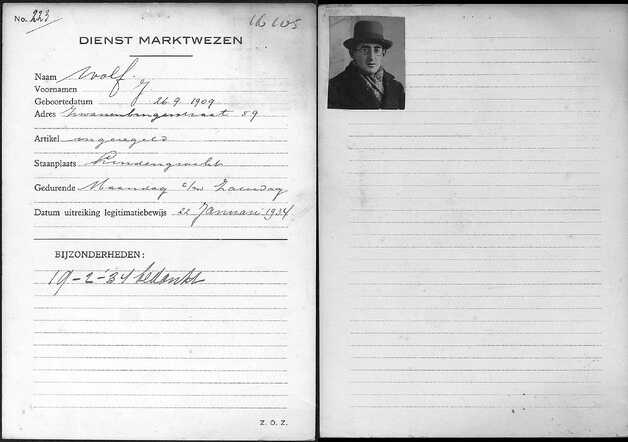 No. 223
16105
DIENST MARKTWEZEN
Naam Wolf.
Voornamen J
Geboortedatum 26 9 1909
Adres Zwanenburgerstraat 89
Artikel ongeregeld
Staanplaats Lindengracht
Gedurende Maandag t/m Zaterdag
Datum uitreiking legitimatiebewijs 22 Januari 1934
BIJZONDERHEDEN:
19-2-'34 bedankt
Z. O. Z.